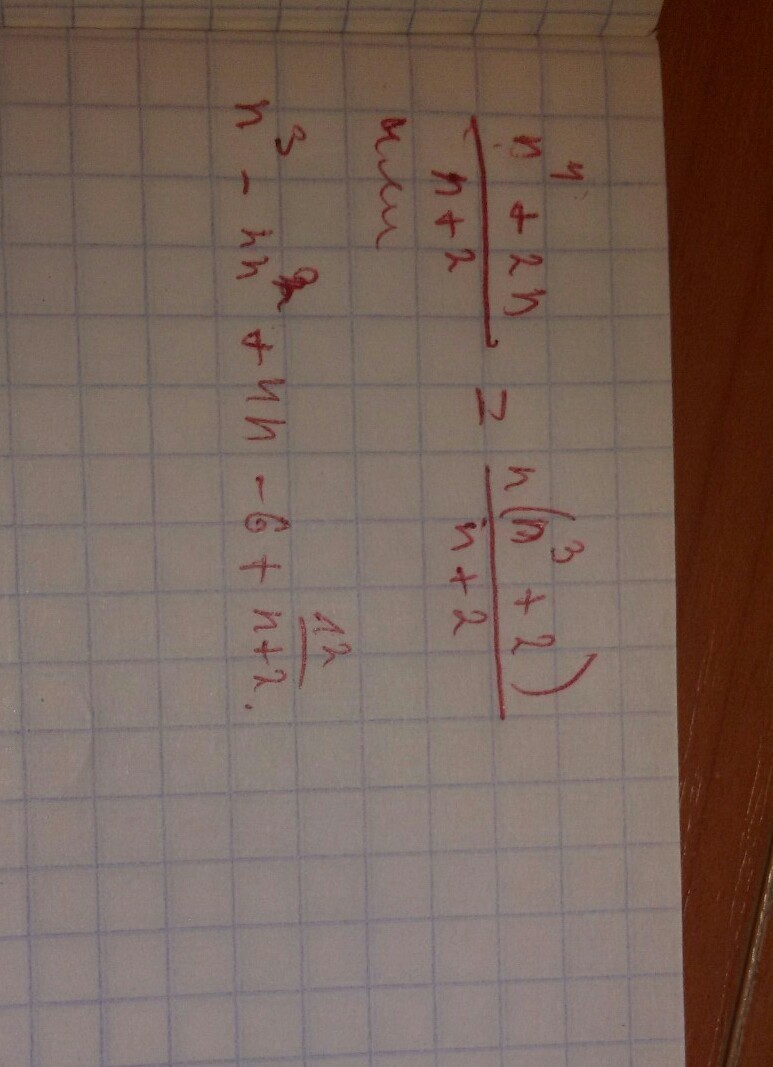 n⁴ + 2n / n + 2 = n(n³ + 2) / n + 2
или
n³ - 4n² + 4n - 6 + 12 / n+2.